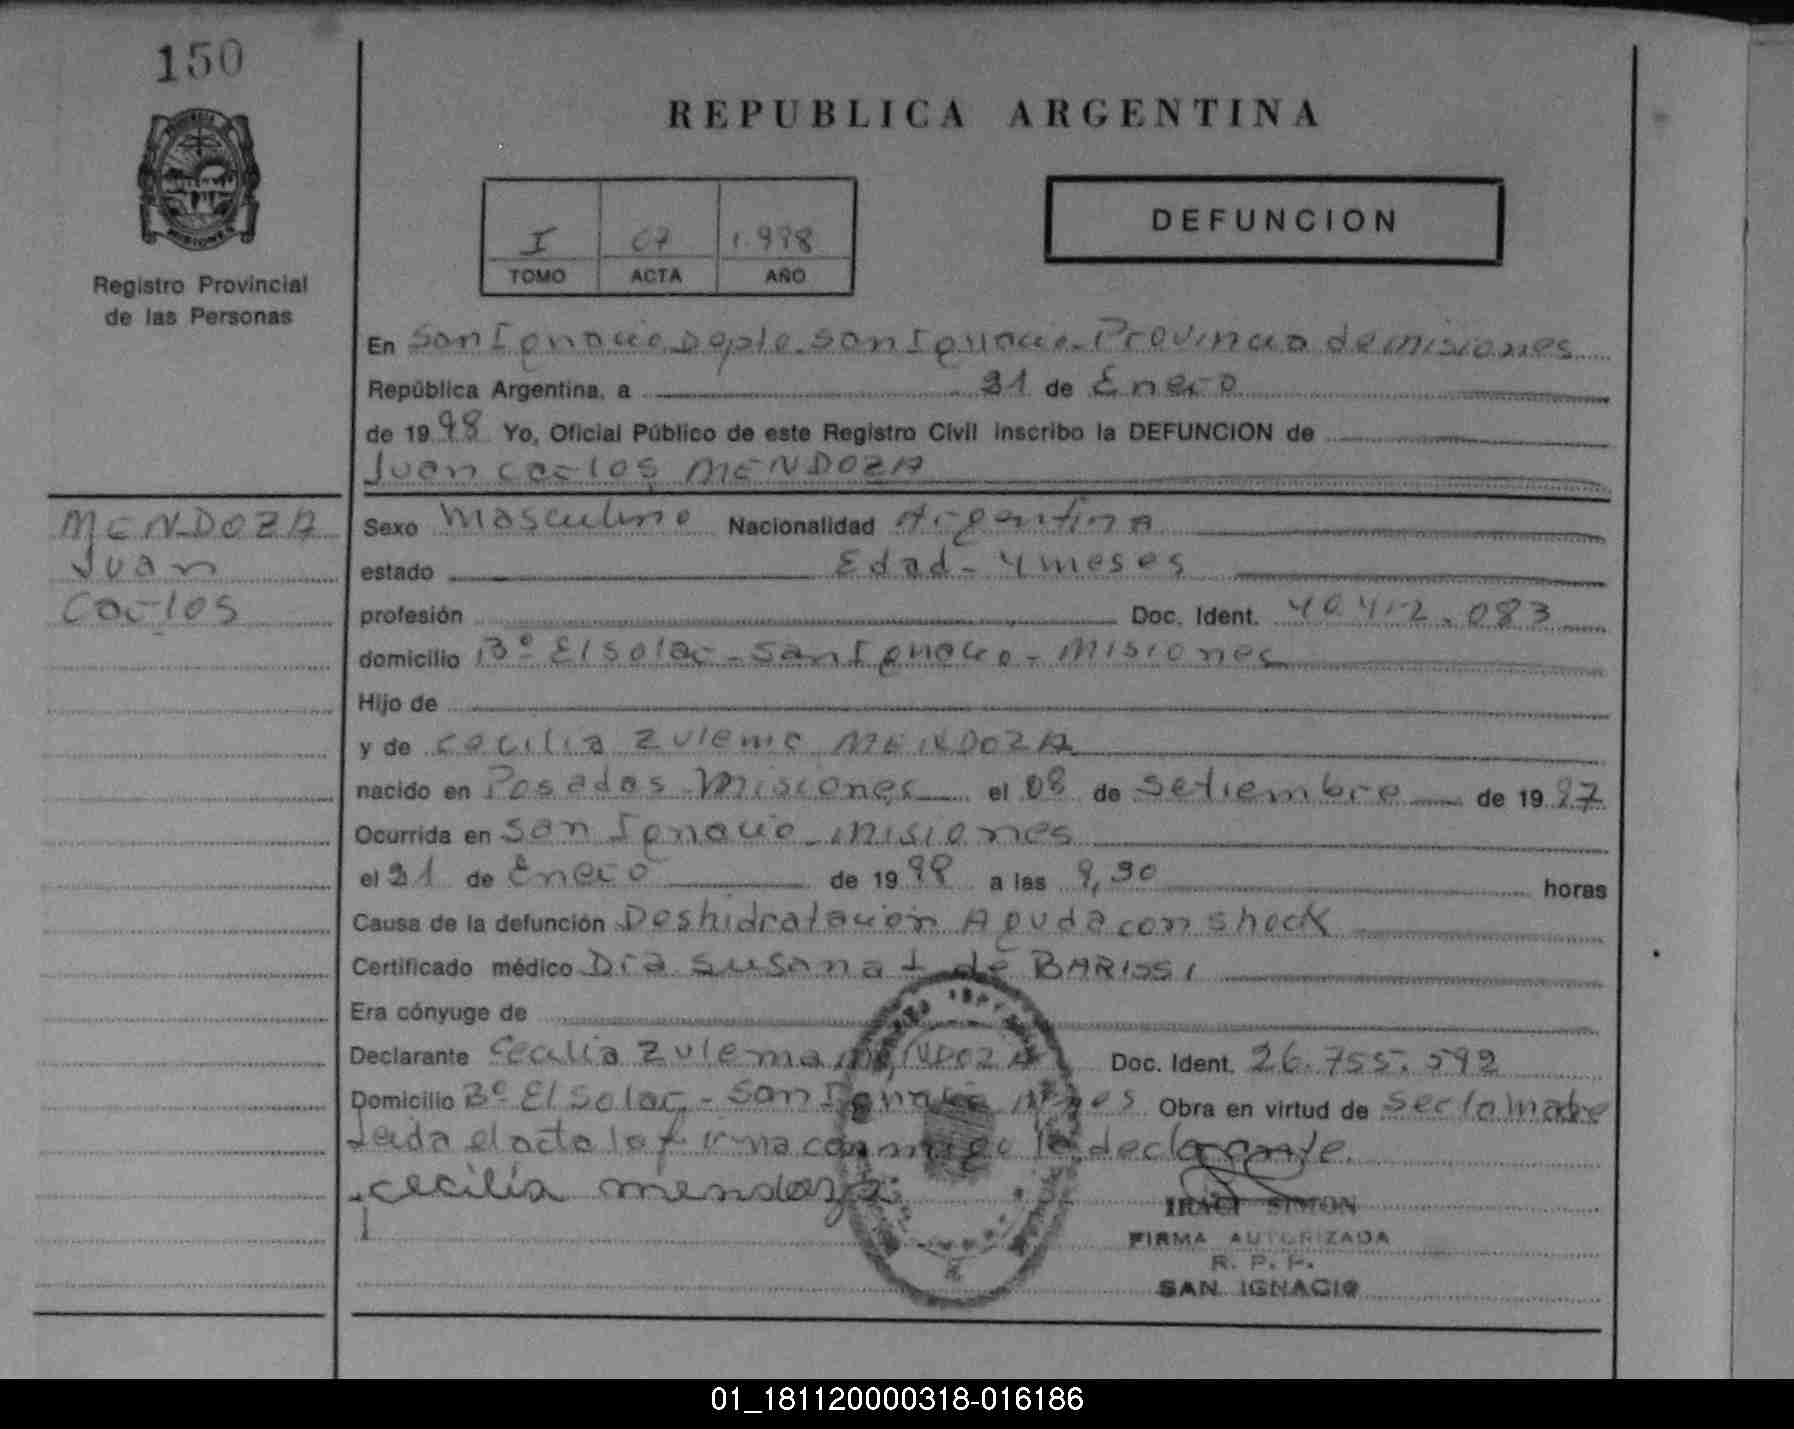 150
REPUBLICA ARGENTINA
I 07 1.998
TOMO ACTA AÑO
DEFUNCION
Registro Provincial
de las Personas
En San Ignacio Depto. San Ignacio - Provincia de misiones
República Argentina, a 31 de Enero
de 1998 Yo, Oficial Público de este Registro Civil inscribo la DEFUNCION de
Juan Carlos MENDOZA
MENDOZA
Juan
Carlos
Sexo Masculino Nacionalidad ArgentinA
estado Edad - 4 meses
profesión Doc. Ident. 40.412.083
domicilio Bº El Solar - San Ignacio - Misiones
Hijo de
y de Cecilia Zulema MENDOZA
nacido en Posadas Misiones el 08 de Setiembre de 1997
Ocurrida en San Ignacio - Misiones
el 31 de Enero de 1998 a las 9,30 horas
Causa de la defunción Deshidratación Aguda con shock
Certificado médico Dra Susana I de BARISSI
Era cónyuge de
Declarante Cecilia Zulema MENDOZA Doc. Ident. 26.755.592
Domicilio Bº El Solar - San Ignacio Mnes Obra en virtud de Ser la madre
Leida el acta la firma conmigo la declarante.
cecilia mendoza
IRACI SIMON
FIRMA AUTORIZADA
R. P. P.
SAN IGNACIO
01_181120000318-016186